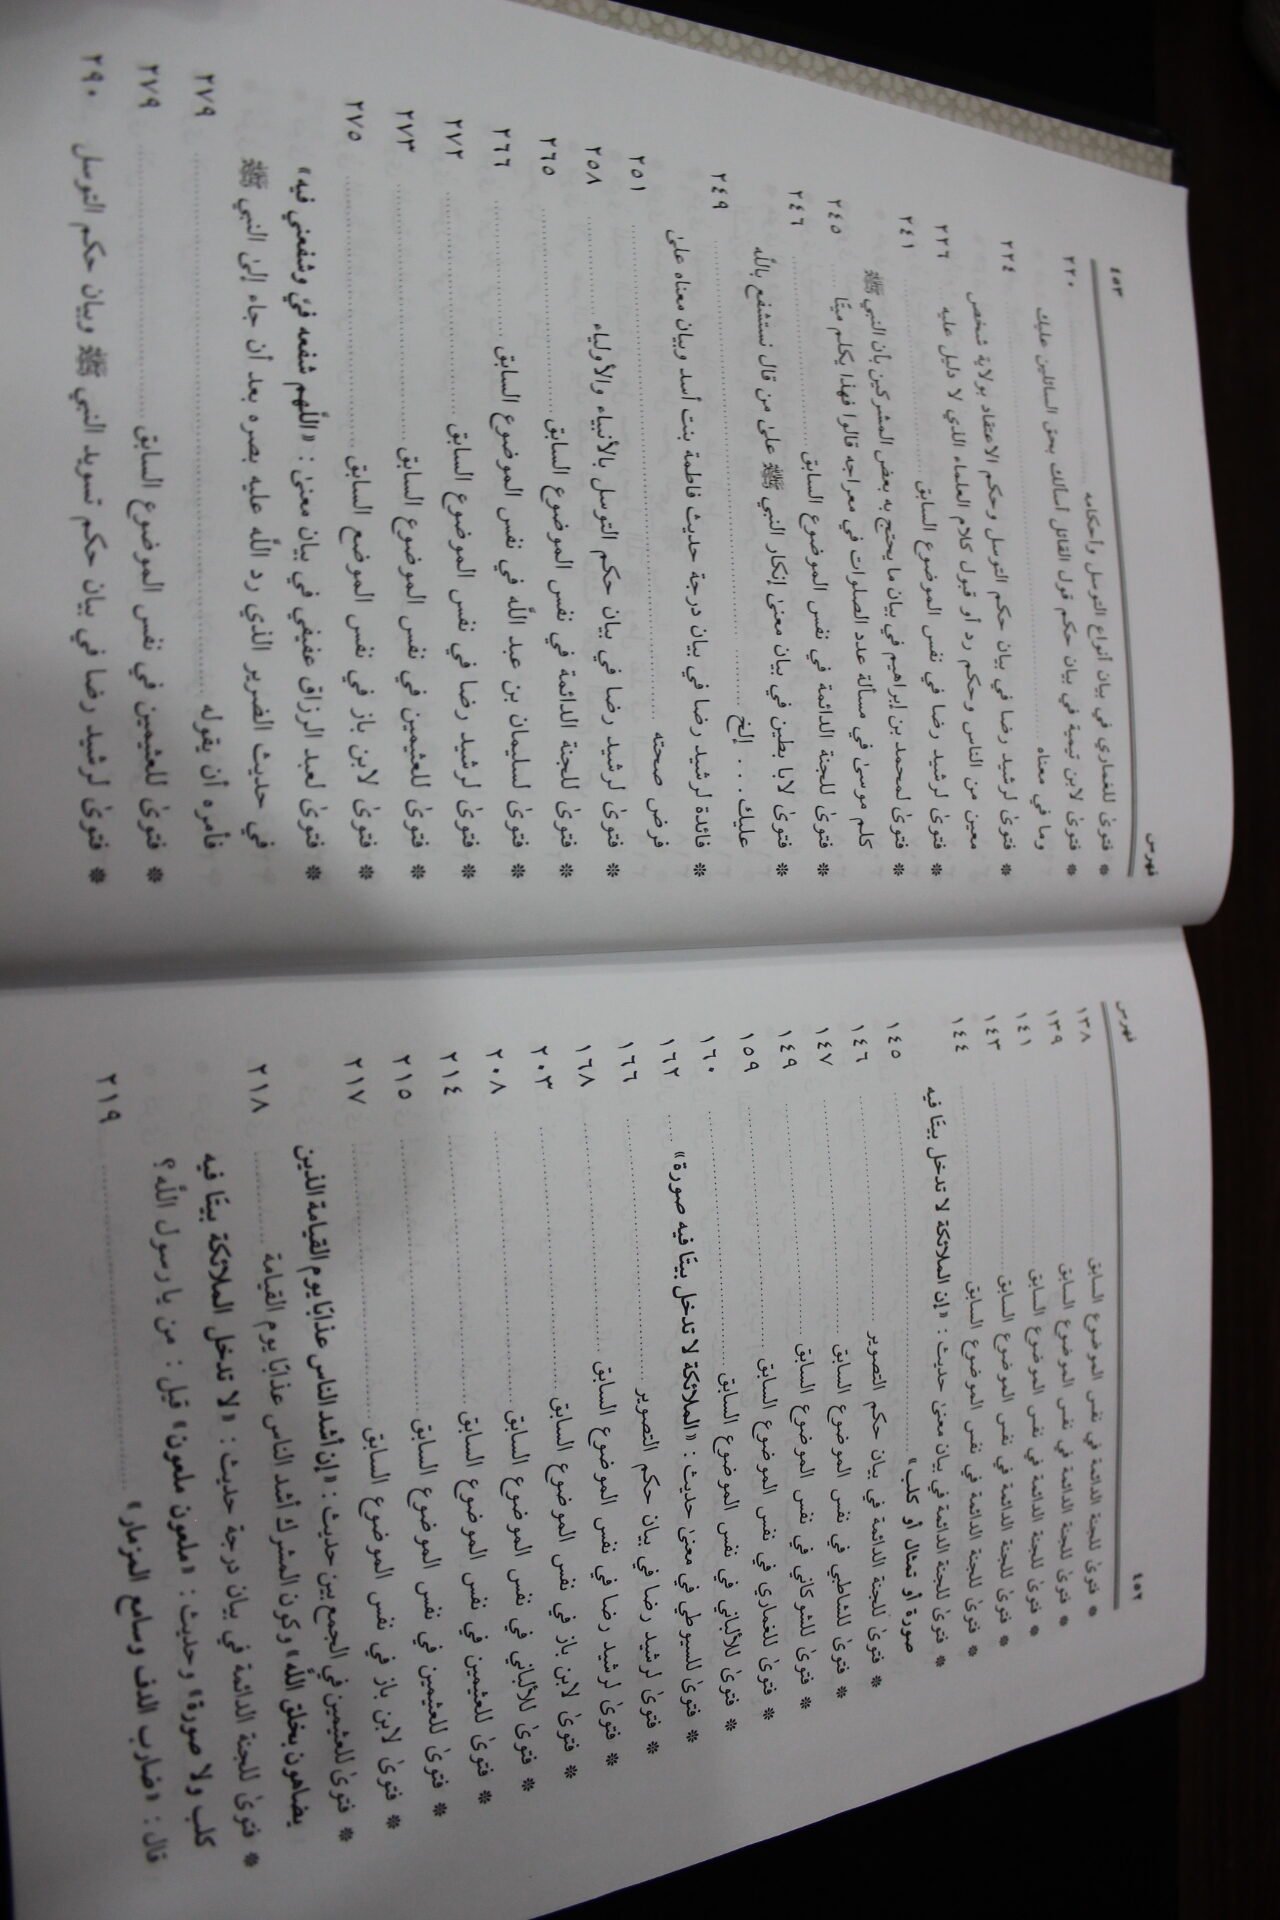 ٤٥٢
فهرس
* فتوىٰ للجنة الدائمة في نفس الموضوع السابق ١٣٨
* فتوىٰ للجنة الدائمة في نفس الموضوع السابق ١٣٩
* فتوىٰ للجنة الدائمة في نفس الموضوع السابق ١٤١
* فتوىٰ للجنة الدائمة في نفس الموضوع السابق ١٤٣
* فتوىٰ للجنة الدائمة في نفس الموضوع السابق ١٤٤
* فتوىٰ للجنة الدائمة في بيان معنىٰ حديث: «إن الملائكة لا تدخل بيتًا فيه
صورة أو تمثال أو كلب» ١٤٥
* فتوىٰ للجنة الدائمة في بيان حكم التصوير ١٤٦
* فتوىٰ للشاطبي في نفس الموضوع السابق ١٤٧
* فتوىٰ للشوكاني في نفس الموضوع السابق ١٤٩
* فتوىٰ للغماري في نفس الموضوع السابق ١٥٩
* فتوىٰ للألباني في نفس الموضوع السابق ١٦٠
* فتوىٰ للسيوطي في معنىٰ حديث: «الملائكة لا تدخل بيتًا فيه صورة» ١٦٢
* فتوىٰ لرشيد رضا في بيان حكم التصوير ١٦٦
* فتوىٰ لرشيد رضا في نفس الموضوع السابق ١٦٨
* فتوىٰ لابن باز في نفس الموضوع السابق ٢٠٣
* فتوىٰ للألباني في نفس الموضوع السابق ٢٠٨
* فتوىٰ للعثيمين في نفس الموضوع السابق ٢١٤
* فتوىٰ للعثيمين في نفس الموضوع السابق ٢١٥
* فتوىٰ لابن باز في نفس الموضوع السابق ٢١٧
* فتوىٰ للعثيمين في الجمع بين حديث: «إن أشد الناس عذابًا يوم القيامة الذين
يضاهون بخلق اللَّه» وكون المشرك أشد الناس عذابًا يوم القيامة ٢١٨
* فتوىٰ للجنة الدائمة في بيان درجة حديث: «لا تدخل الملائكة بيتًا فيه
كلب ولا صورة» وحديث: «ملعون ملعون» قيل: من يا رسول اللَّه؟
قال: «ضارب الدف وسامع المزمار» ٢١٩
فهرس
٤٥٣
* فتوىٰ للغماري في بيان أنواع التوسل وأحكامه ٢٢٠
* فتوىٰ لابن تيمية في بيان حكم قول القائل أسألك بحق السائلين عليك
وما في معناه ٢٢٤
* فتوىٰ لرشيد رضا في بيان حكم التوسل وحكم الاعتقاد بولاية شخص
معين من الناس وحكم رد أو قبول كلام العلماء الذي لا دليل عليه ٢٢٦
* فتوىٰ لرشيد رضا في نفس الموضوع السابق ٢٤١
* فتوىٰ لمحمد بن إبراهيم في بيان ما يحتج به بعض المشركين بأن النبي ﷺ
كلم موسىٰ في مسألة عدد الصلوات في معراجه قالوا فهذا يكلم ميتًا ٢٤٥
* فتوىٰ للجنة الدائمة في نفس الموضوع السابق ٢٤٦
* فتوىٰ لابا بطين في بيان معنىٰ إنكار النبي ﷺ علىٰ من قال نستشفع باللَّه
عليك... إلخ ٢٤٩
* فائدة لرشيد رضا في بيان درجة حديث فاطمة بنت أسد وبيان معناه علىٰ
فرض صحته ٢٥١
* فتوىٰ لرشيد رضا في بيان حكم التوسل بالأنبياء والأولياء ٢٥٨
* فتوىٰ للجنة الدائمة في نفس الموضوع السابق ٢٦٥
* فتوىٰ لسليمان بن عبد اللَّه في نفس الموضوع السابق ٢٦٦
* فتوىٰ لرشيد رضا في نفس الموضوع السابق ٢٧٢
* فتوىٰ للعثيمين في نفس الموضوع السابق ٢٧٣
* فتوىٰ لابن باز في نفس الموضع السابق ٢٧٥
* فتوىٰ لعبد الرزاق عفيفي في بيان معنىٰ: «اللَّهم شفعه فيّ وشفعني فيه»
في حديث الضرير الذي رد اللَّه عليه بصره بعد أن جاء إلىٰ النبي ﷺ
فأمره أن يقوله ٢٧٩
* فتوىٰ للعثيمين في نفس الموضوع السابق ٢٧٩
* فتوىٰ لرشيد رضا في بيان حكم تسويد النبي ﷺ وبيان حكم التوسل ٢٩٠